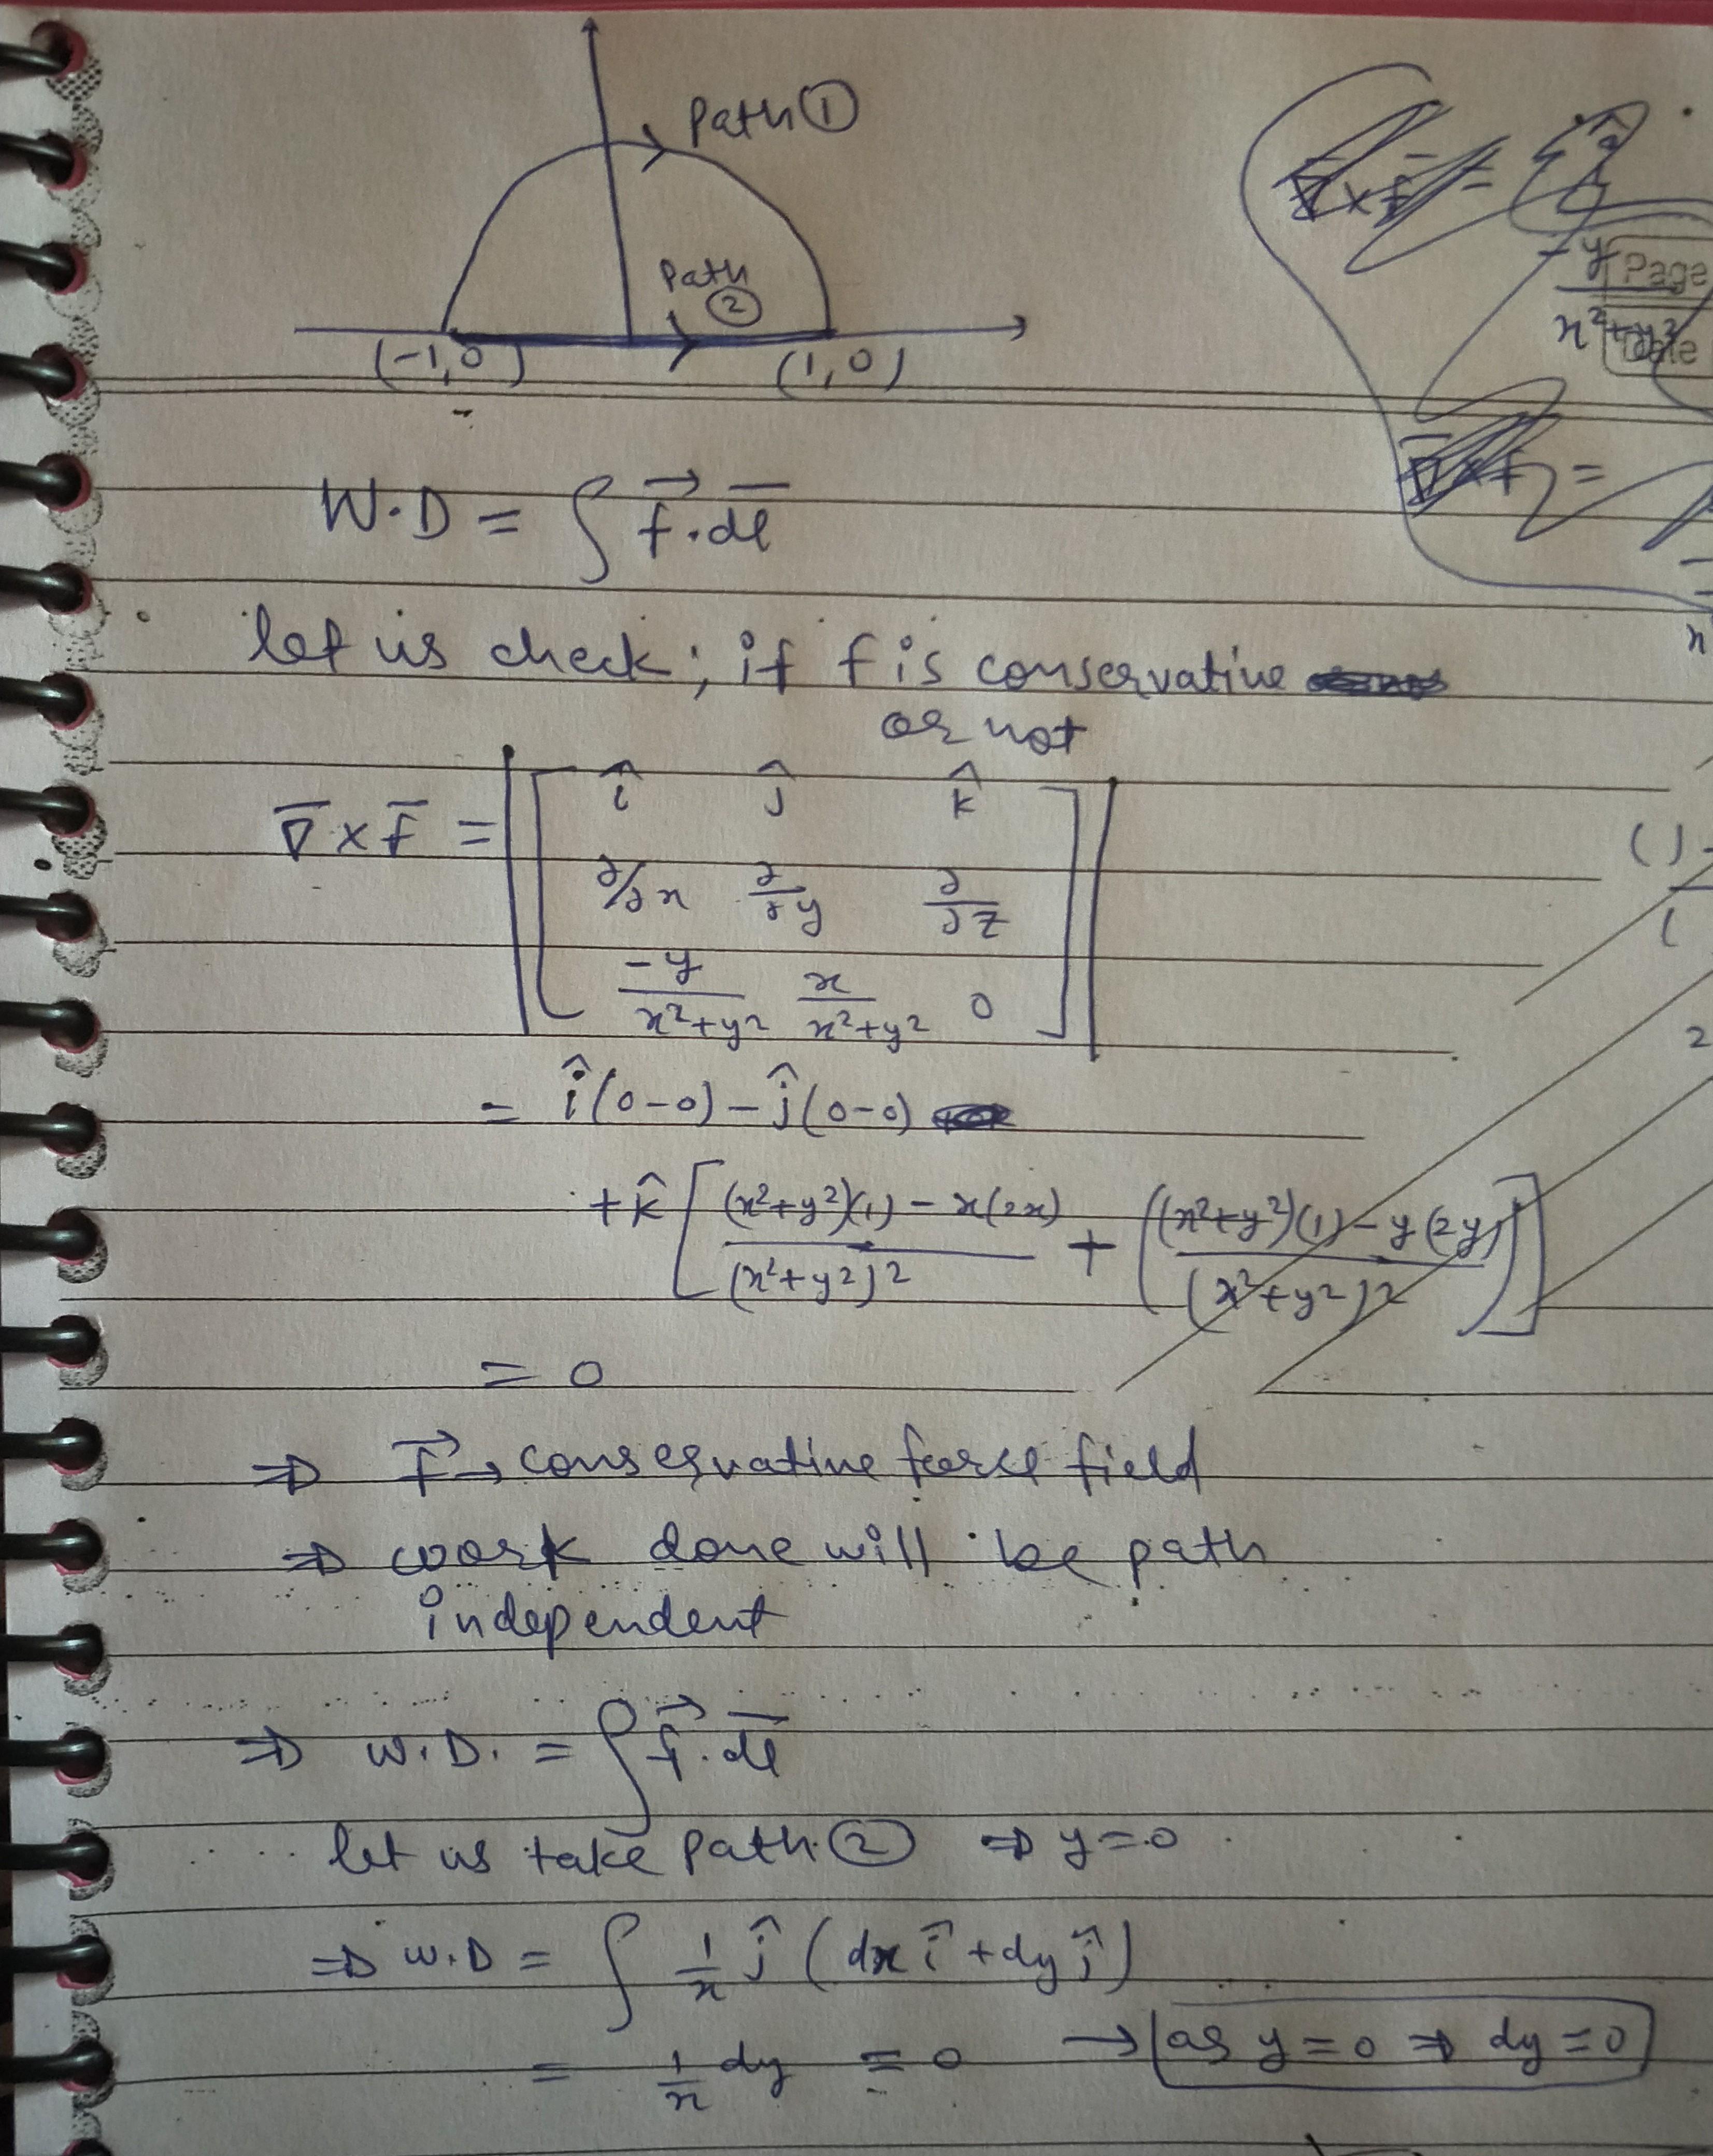 Path ①
Path
②
(-1,0) (1,0)
∇̄ × f̄ =
-y
x²+y²
Page
Date
∇̄ × f =
W.D = ∫ f⃗.dl̄
let us check; if f is conservative
or not
∇̄ × f̄ = |[ î ĵ k̂
∂/∂x ∂/∂y ∂/∂z
-y/x²+y² x/x²+y² 0 ]|
= î(0-0) - ĵ(0-0)
+ k̂ [ (x²+y²)(1) - x(2x)/(x²+y²)² + ((x²+y²)(1) - y(2y)/(x²+y²)²) ]
= 0
⇒ f⃗ → conservative force field
⇒ work done will be path
independent
⇒ W.D. = ∫ f⃗.dl̄
let us take Path ② ⇒ y=0
⇒ W.D = ∫ 1/x ĵ (dx î + dy ĵ)
= 1/x dy = 0 → as y=0 ⇒ dy=0